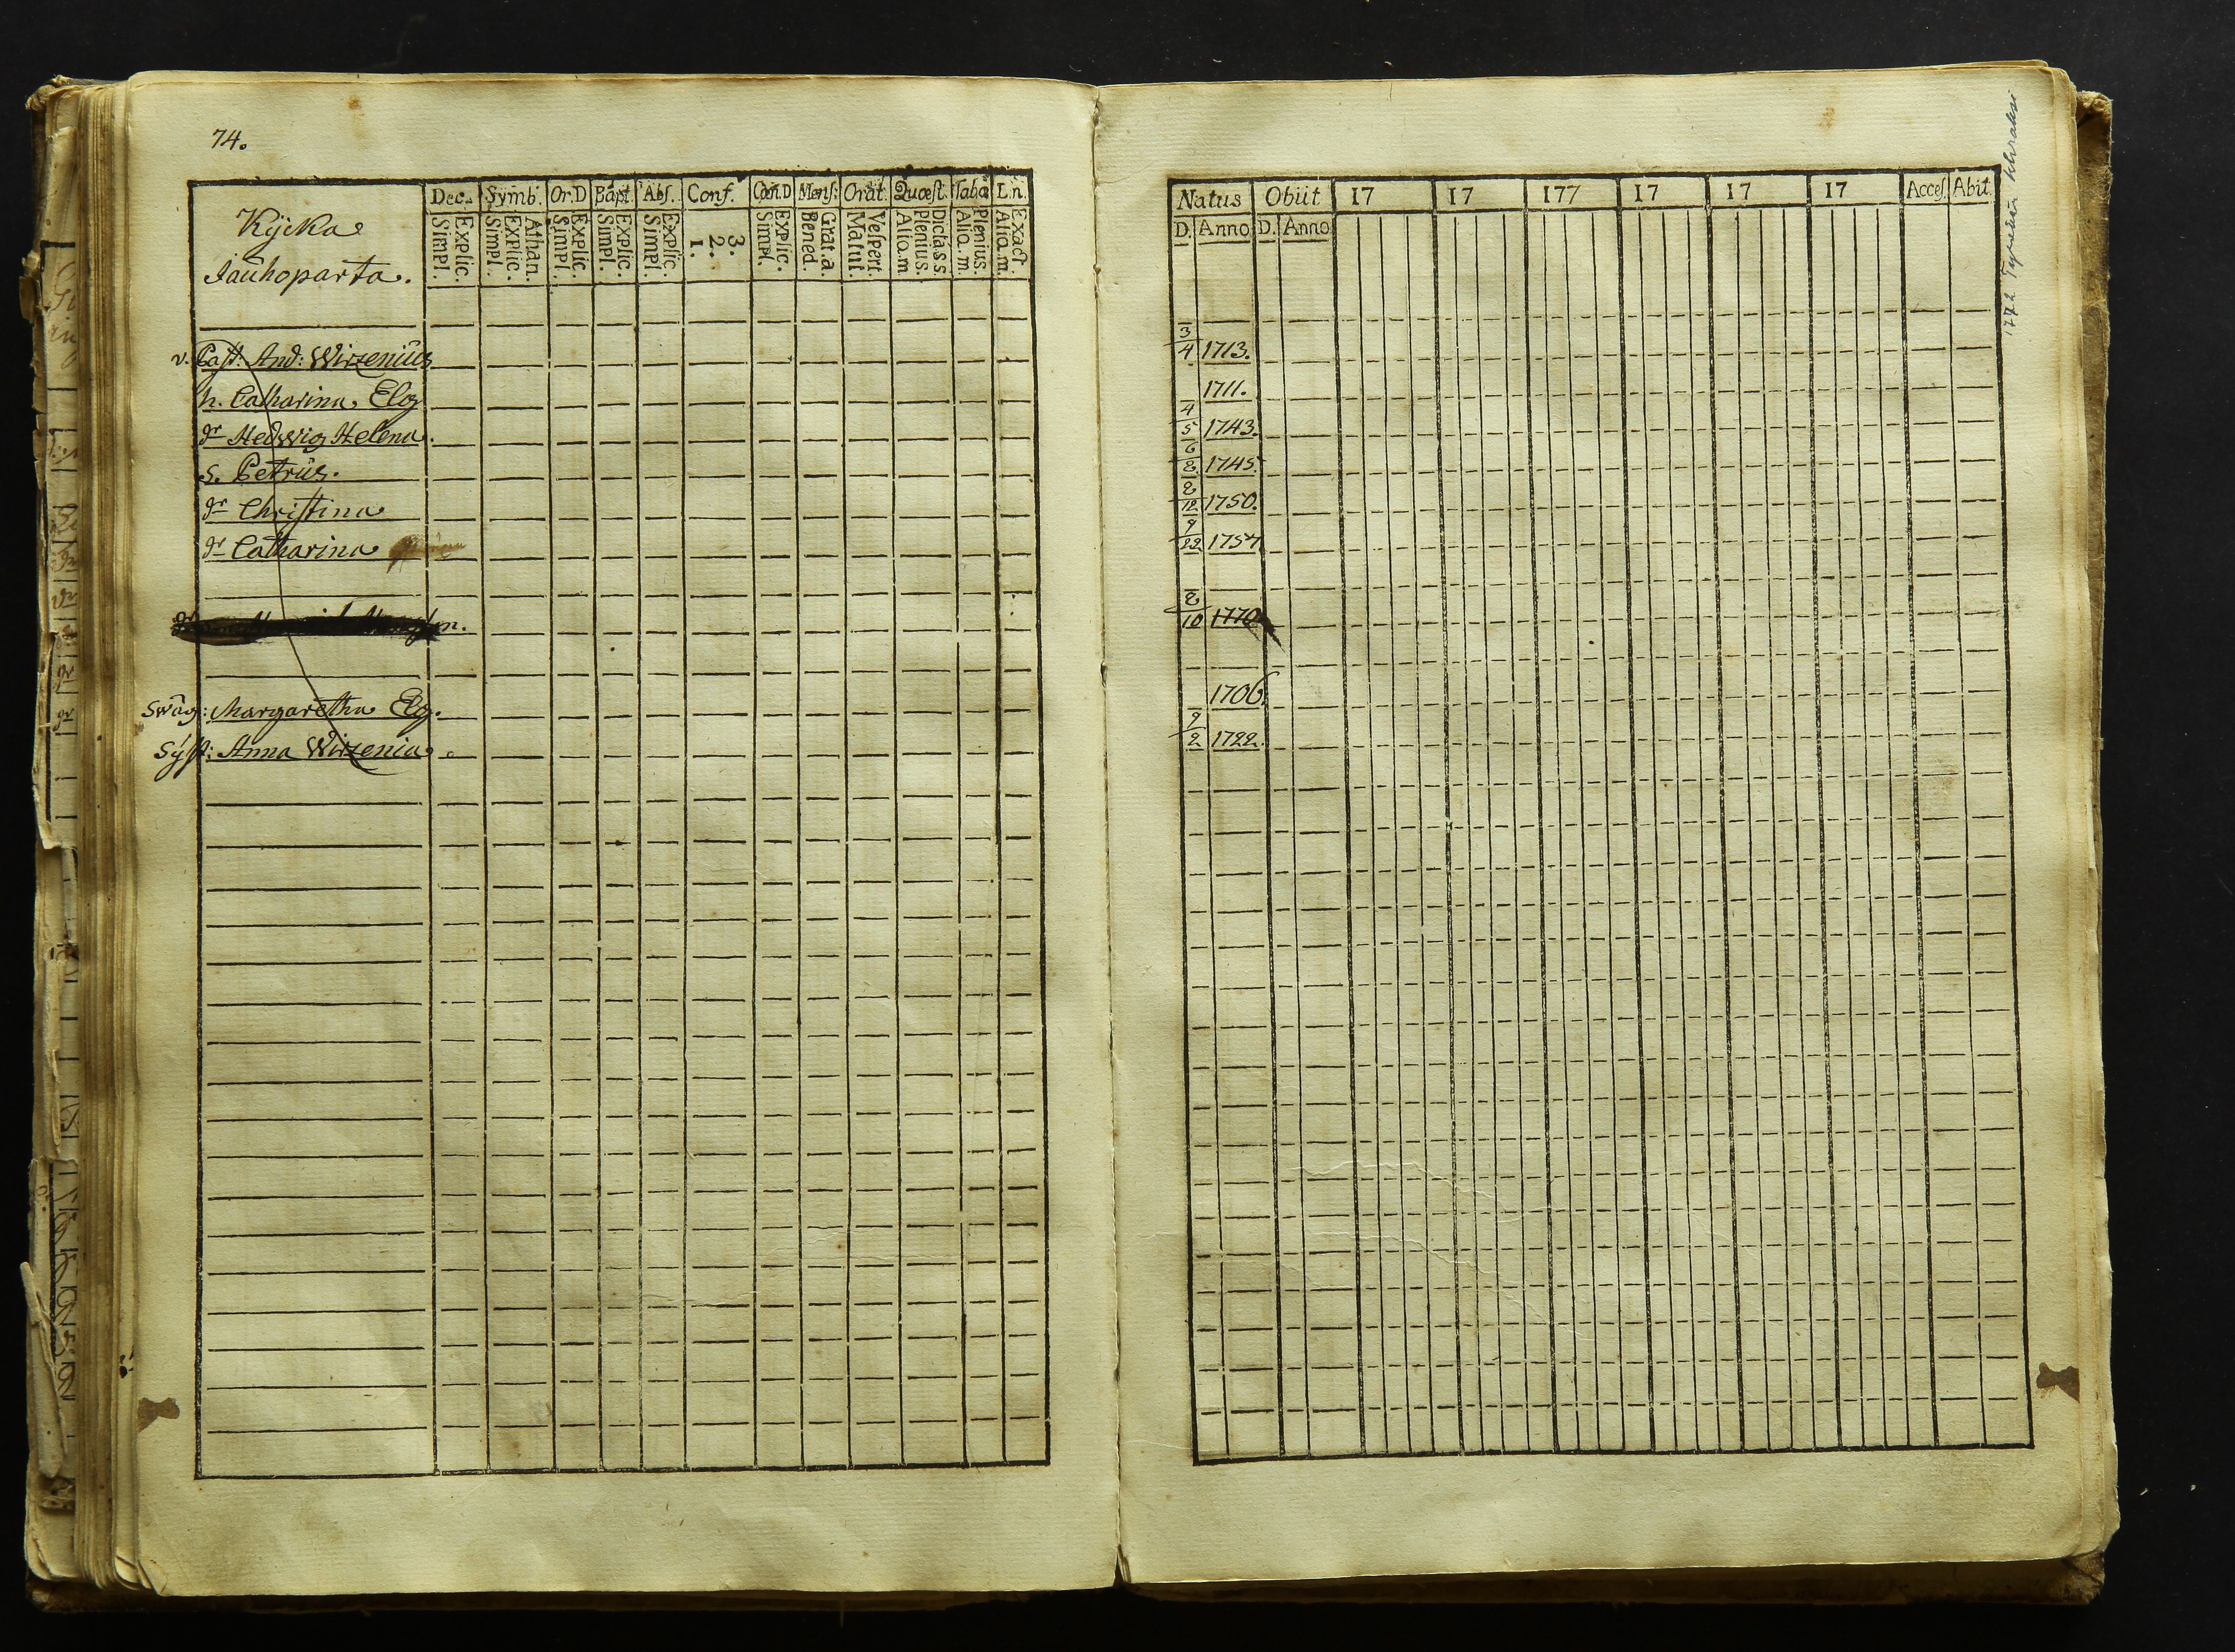 74.
Kÿcka
Jauhoparta.
Dec. Symb. Or.D Bapt. Abs. Conf. Cön.D Mens: Orat. Quæst. Taba L.n.
Simpl. Explic. Simpl. Explic. Athan. Simpl. Explic. Simpl. Explic. Simpl. Explic. 1. 2. 3. Simpl. Explic. Bened. Grat.a. Matut. Vespert. Alio.m Plenius. Dict.a s.s. Alio.m. Plenius. Alio.m. Exact.
v. Past: And: Wirzenius
h. Catharina Elg
dr Hedwig Helena.
S. Petrus.
dr Christina
dr Catharina
Swäg: Margaretha Elg.
Syst: Anna Wirzenia.
Natus Obiit 17 17 177 17 17 17 Acces. Abit.
D. Anno D. Anno
3/4 1713.
1711.
4/5 1743.
6/2 1745.
2/12 1750.
9/22 1757
2/10 1770
1706.
9/2 1722.